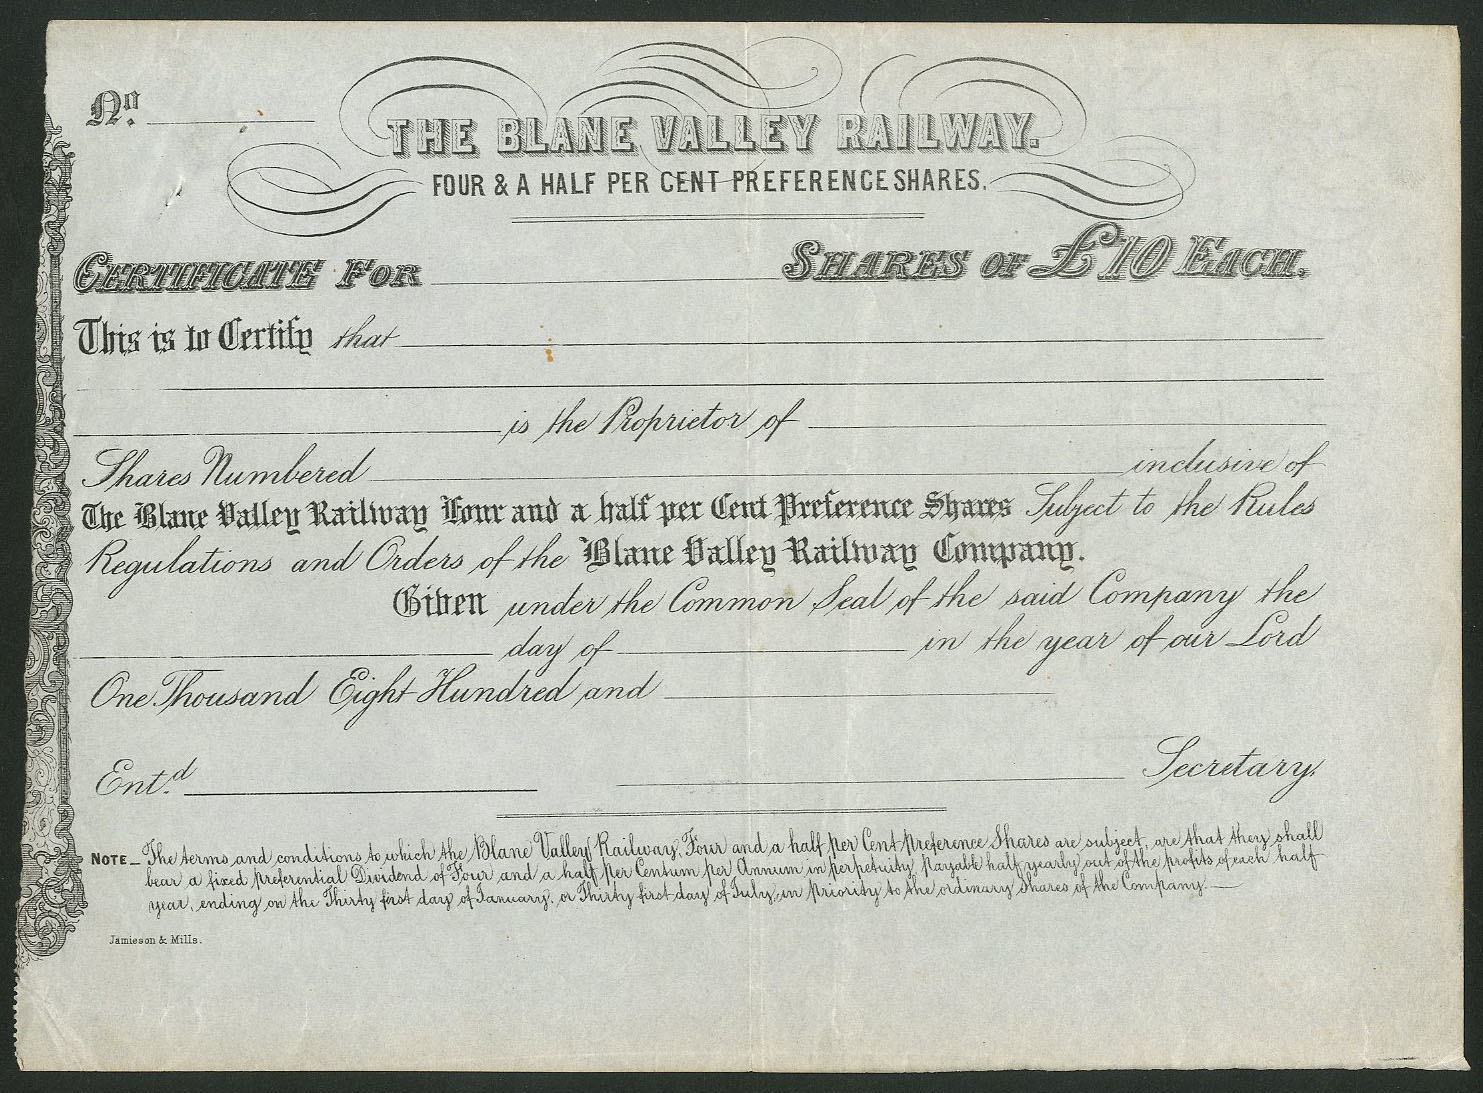 No.
THE BLANE VALLEY RAILWAY.
FOUR & A HALF PER CENT PREFERENCE SHARES.
CERTIFICATE FOR SHARES OF £10 EACH.
This is to Certify that
is the Proprietor of
Shares Numbered inclusive of
The Blane Valley Railway Four and a half per Cent Preference Shares Subject to the Rules
Regulations and Orders of the Blane Valley Railway Company.
Given under the Common Seal of the said Company the
day of in the year of our Lord
One Thousand Eight Hundred and
Ent.d Secretary.
NOTE_ The terms and conditions to which the Blane Valley Railway, Four and a half per Cent Preference Shares are subject, are that they shall
bear a fixed preferential Dividend of Four and a half per Centum per Annum in perpetuity, payable half yearly out of the profits of each half
year, ending on the Thirty first day of January, or Thirty first day of July, in priority to the ordinary Shares of the Company.
Jamieson & Mills.